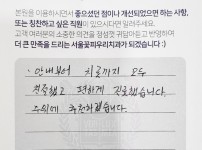 본원을 이용하시면서 좋으셨던 점이나 개선되었으면 하는 사항,
또는 칭찬하고 싶은 직원이 있으시다면 알려주세요.
고객 여러분의 소중한 의견을 정성껏 귀담아듣고 반영하여
더 큰 만족을 드리는 서울꽃피우리치과가 되겠습니다 :)
안내부터 치료까지 모두
친절했고 편하게 진료했습니다.
주위에 추천하겠습니다.